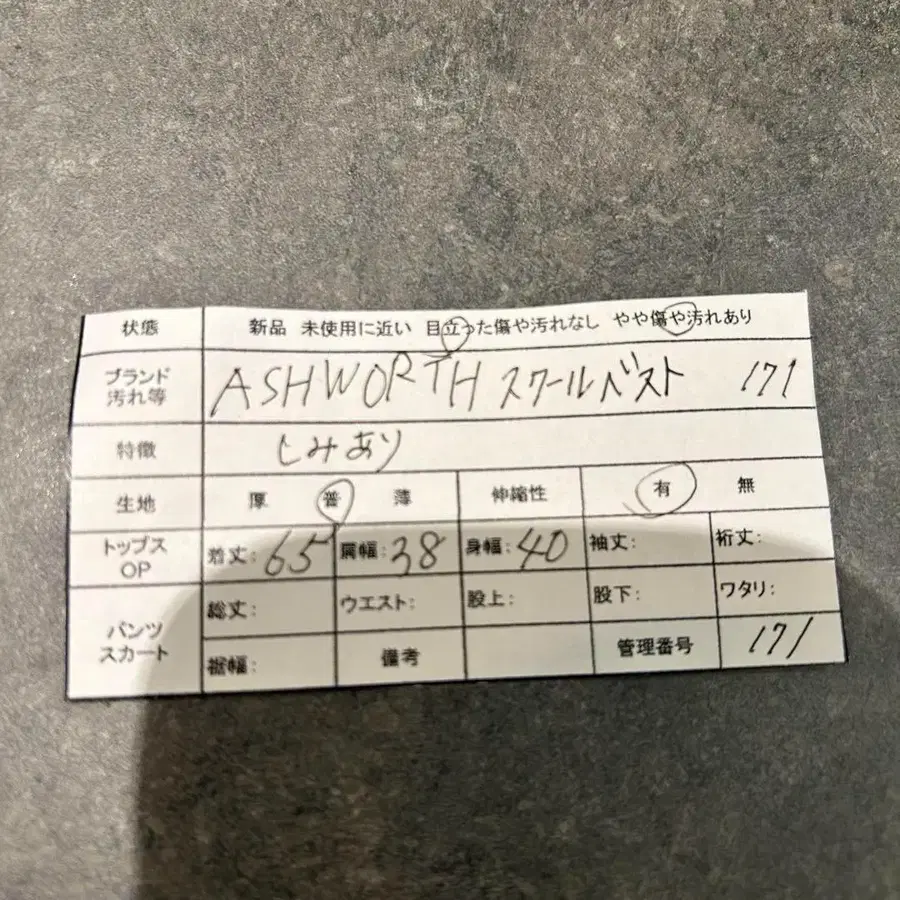 状態 新品 未使用に近い 目立った傷や汚れなし やや傷や汚れあり
ブランド 汚れ等 ASHWORTH スクールベスト 171
特徴 しみあり
生地 厚 普 薄 伸縮性 有 無
トップス OP 着丈: 65 肩幅: 38 身幅: 40 袖丈: 裄丈:
パンツ スカート 総丈: ウエスト: 股上: 股下: ワタリ:
裾幅: 備考 管理番号 171